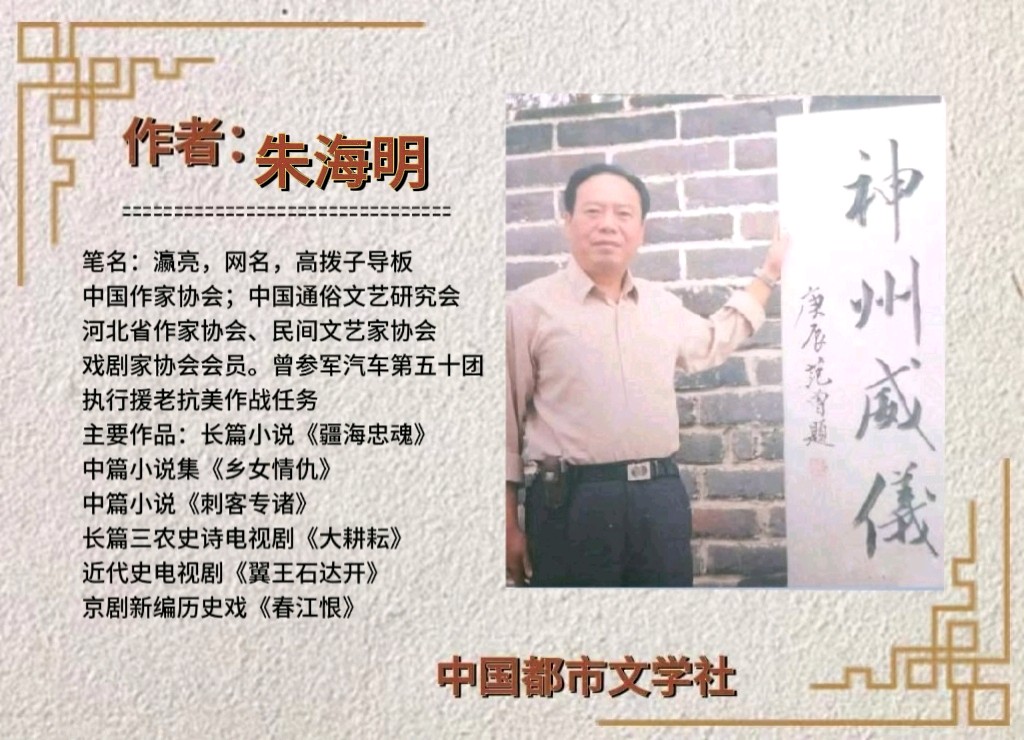 作者：朱海明
笔名：瀛亮，网名，高拨子导板
中国作家协会；中国通俗文艺研究会
河北省作家协会、民间文艺家协会
戏剧家协会会员。曾参军汽车第五十团
执行援老抗美作战任务
主要作品：长篇小说《疆海忠魂》
中篇小说集《乡女情仇》
中篇小说《刺客专诸》
长篇三农史诗电视剧《大耕耘》
近代史电视剧《翼王石达开》
京剧新编历史戏《春江恨》
神州威儀
庚辰范曾题
中国都市文学社